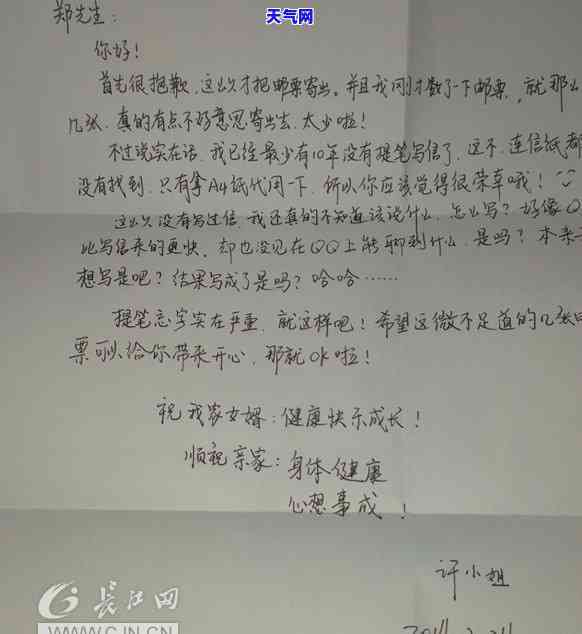 天气网
郑先生：
你好！
首先很抱歉，这么久才把邮票寄出。并且我刚才数了一下邮票，就那么
几张，真的有点不好意思寄出去，太少啦！
不过说实在话，我已经最少有10年没有提笔写信了，这不，连信纸都
没有找到，只有拿A4纸代用一下，所以你应该觉得很荣幸哦！
这么久没有写过信，我还真的不知道该说什么，怎么写？好像Q
比写信来的更快，却也没见在QQ上能聊到什么，是吗？本来
想写是吧？结果写成了是吗？哈哈……
提笔忘字实在严重，就这样吧！希望这微不足道的几张
票可以给你带来开心，那就OK啦！
祝我家女婿：健康快乐成长！
顺祝亲家：身体健康
心想事成！
许小姐
长江网
WWW.CJN.CN